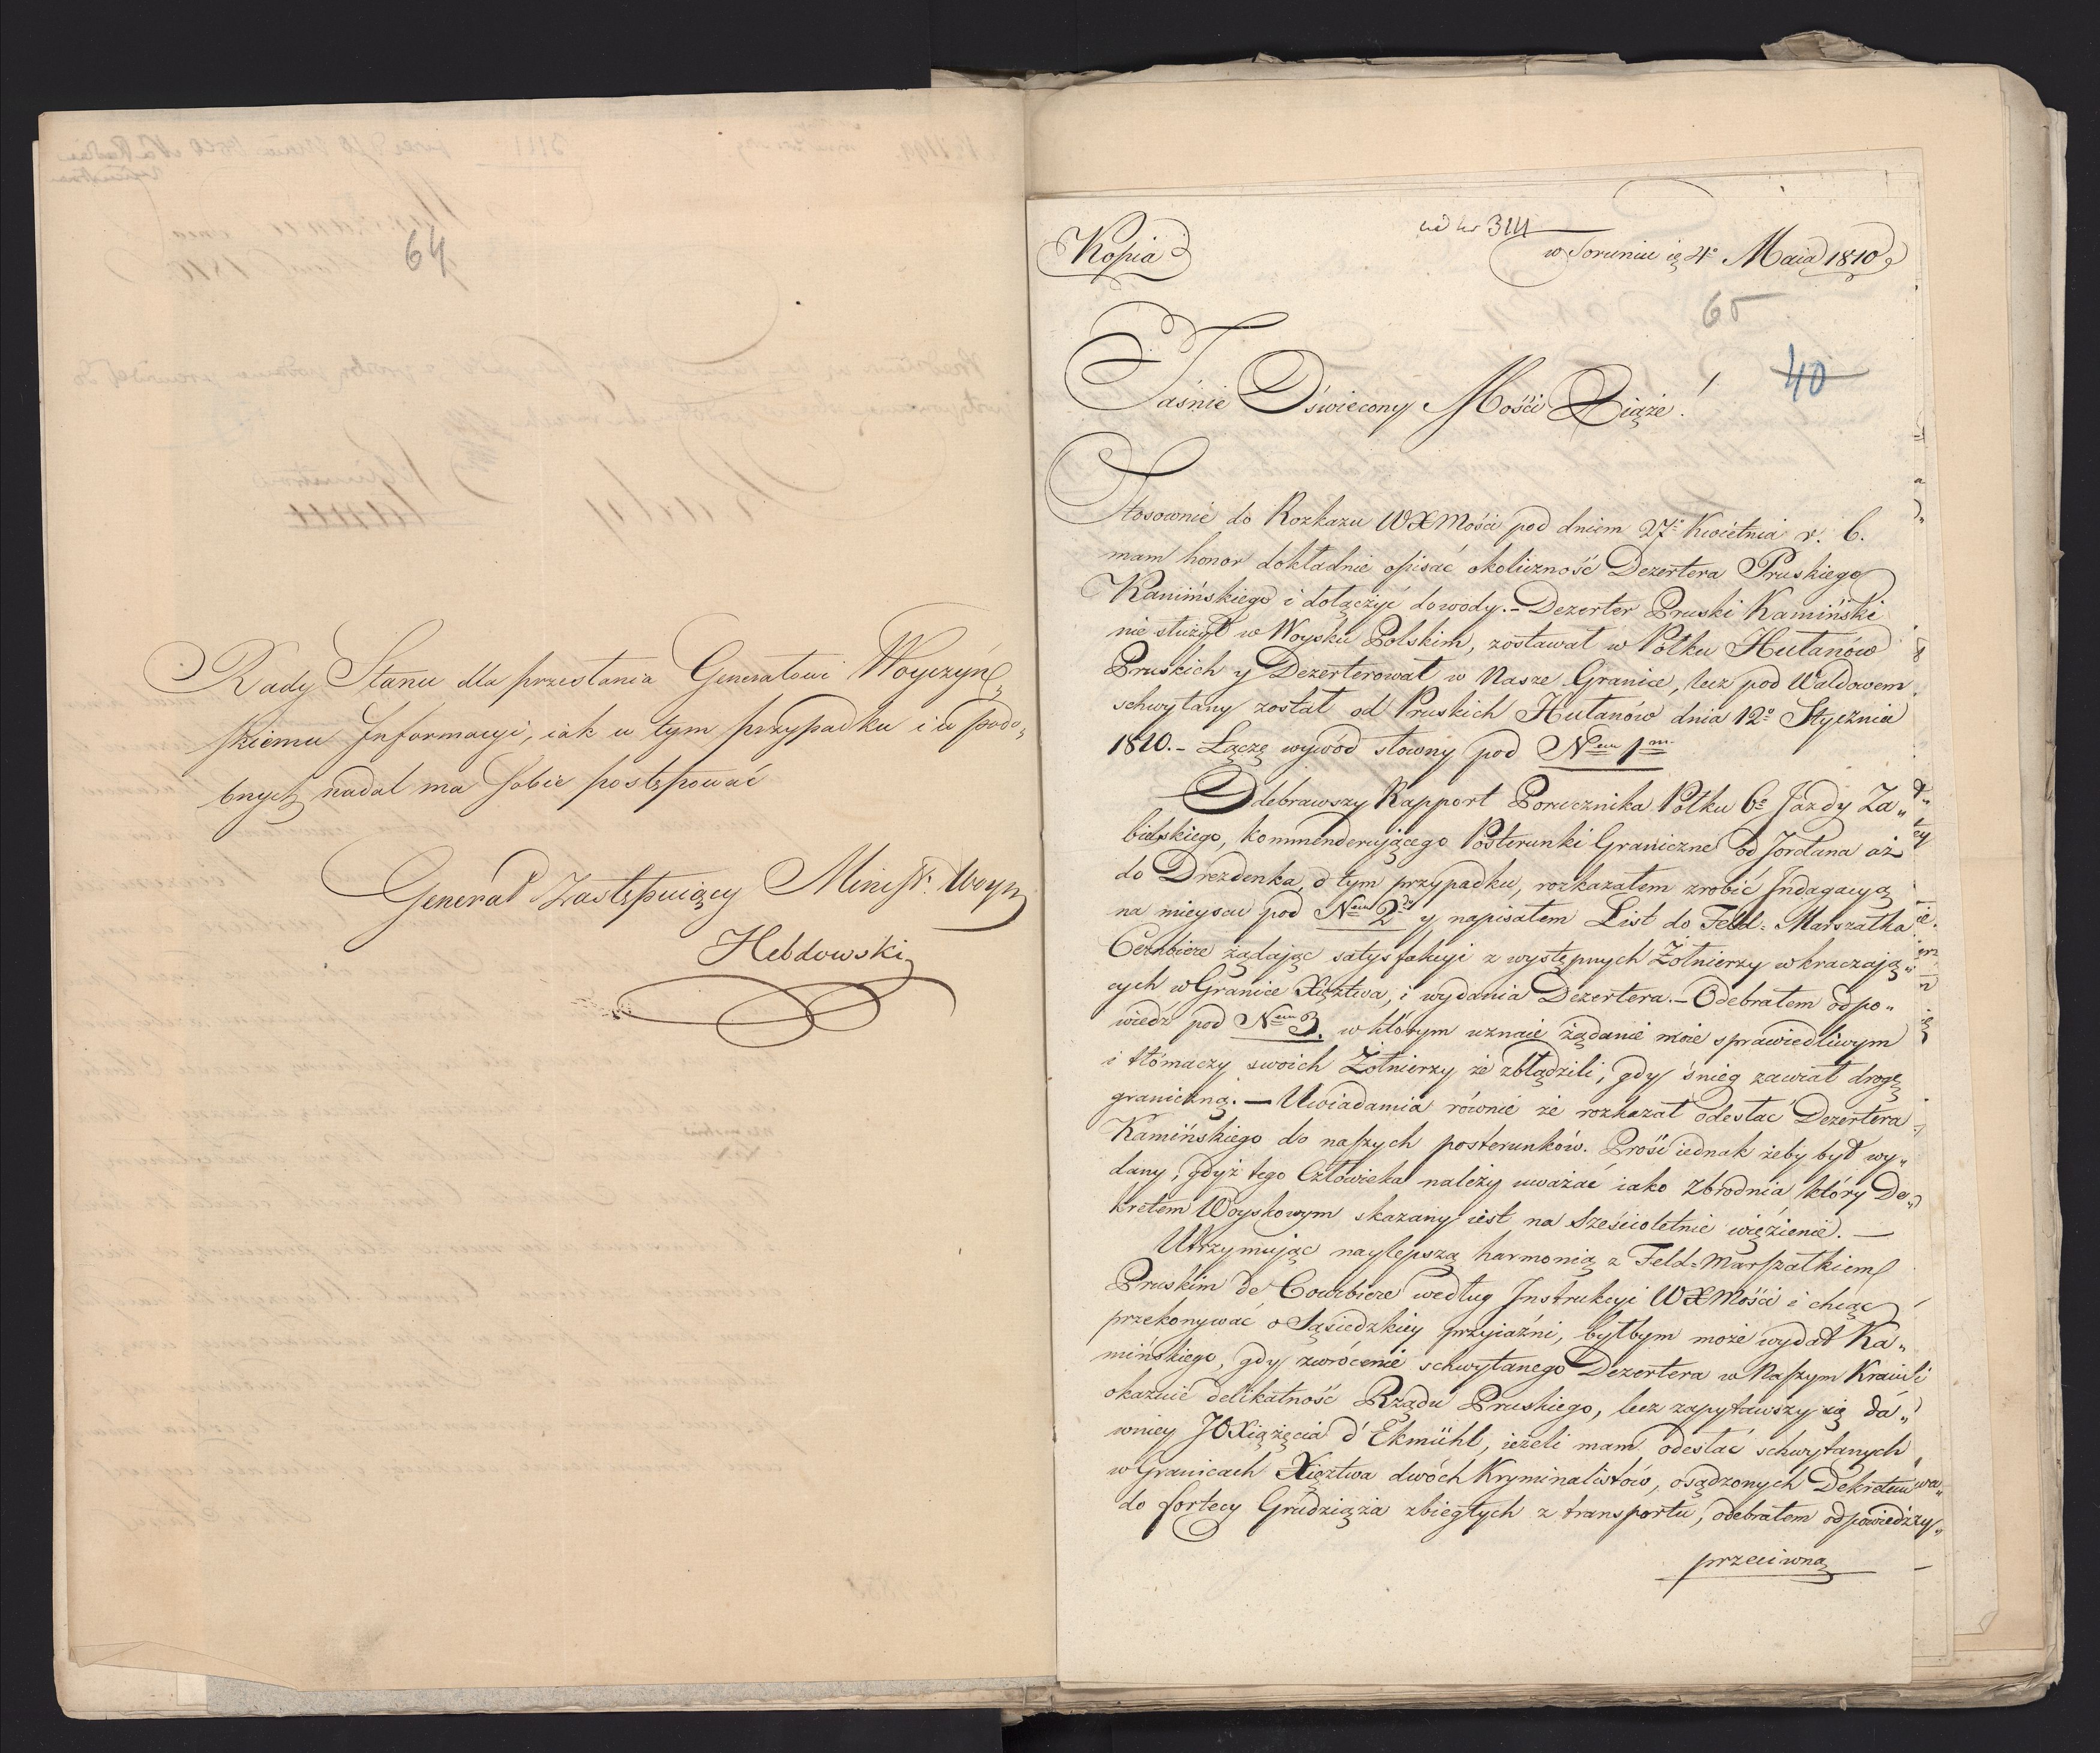 64
Rady Stanu dla przesłania Generałowi Woyczyń„
skiemu Informacyi, iak w tym przypadku i w podo„
bnych nadal ma sobie postępować
Generał Zastępuiący Minist: Woyny
Hebdowski
Kopia
ad N 3111
w Toruniu 4º Maia 1810
65
40
Jaśnie Oświecony Mości Xiąże!
Stosownie do Rozkazu WXMości pod dniem 27º Kwietnia r. b.
mam honor dokładnie opisać okoliczność Dezertera Pruskiego
Kamińskiego i dołączyć dowody.– Dezerter Pruski Kamiński
nie służył w Woysku Polskim, zostawał w Połku Hułanów
Pruskich y Dezerterował w Nasze Granice, lecz pod Waldowem
schwytany został od Pruskich Hułanów dnia 12º Stycznia
1810.– Łączę wywód słowny pod Nem 1m
Odebrawszy Rapport Porucznika Połku 6º Jazdy Za„
bielskiego, kommenderującego Posterunki Graniczne od Jordana aż
do Drezdenka, o tym przypadku, rozkazałem zrobić Indagacyą
na mieyscu pod Nem 2 y napisałem List do Feld: Marszałka
Courbiere żądając satysfakcyi z występnych Żołnierzy wkraczają„
cych w Granice Xięztwa, i wydania Dezertera.– Odebrałem odpo„
wiedź pod Nem 3. w którym uznaie żądanie moie sprawiedliwym
i tłómaczy swoich Żołnierzy że zbłądzili, gdy śnieg zawiał drogę
graniczną.– Uwiadamia równie że rozkazał odesłać Dezertera
Kamińskiego do naszych posterunków. Prosi iednak żeby był wy„
dany, gdyż tego Człowieka należy uważać iako Zbrodnia który De„
kretem Woyskowym skazany iest na Sześcioletnie więzienie.–
Utrzymując naylepszą harmonią z Feld-Marszałkiem
Pruskim de Courbiere według Instrukcyi WXMości i chcąc
przekonywać o Sąsiedzkiey przyiaźni, byłbym może wydał Ka„
mińskiego, gdy zwrócenie schwytanego Dezertera w Naszym Kraiu
okazuie delikatność Rządu Pruskiego, lecz zapytawszy się da„
wniey JOXiążęcia d'Ekmühl, ieżeli mam odesłać schwytanych
w Granicach Xięztwa dwóch Kryminalistów, osądzonych Dekretem
do fortecy Grudziąża zbiegłych z transportu, odebrałem odpowiedź
przeciwną